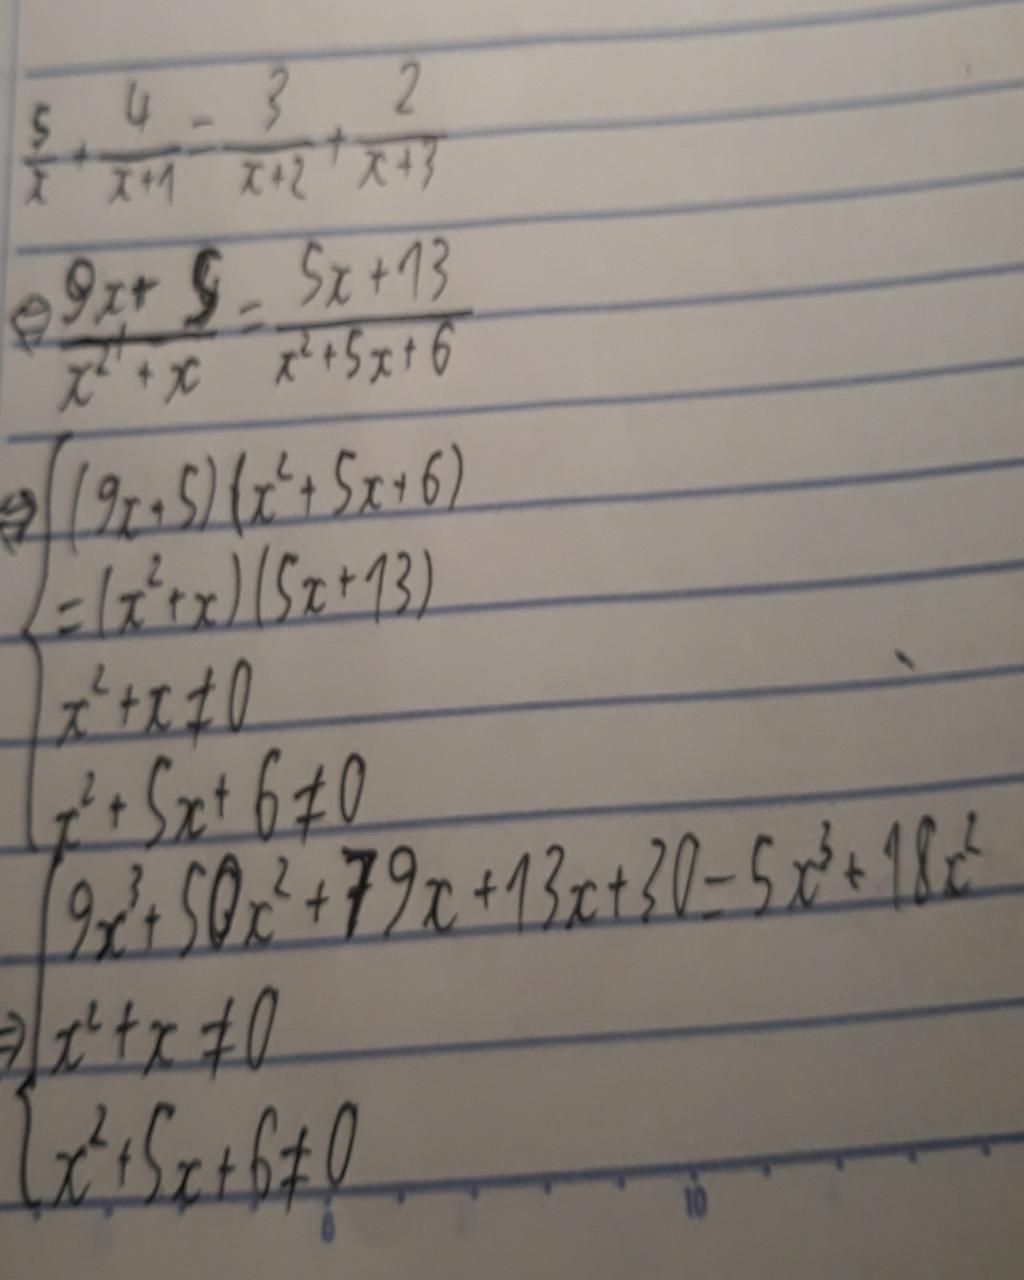 5/x + 4/(x+1) = 3/(x+2) + 2/(x+3)
⇔ (9x+5)/(x²+x) = (5x+13)/(x²+5x+6)
⇔ { (9x+5)(x²+5x+6)
=(x²+x)(5x+13)
x²+x≠0
x²+5x+6≠0
9x³+50x²+79x+13x+30=5x³+18x²
⇒ { x²+x≠0
x²+5x+6≠0
10